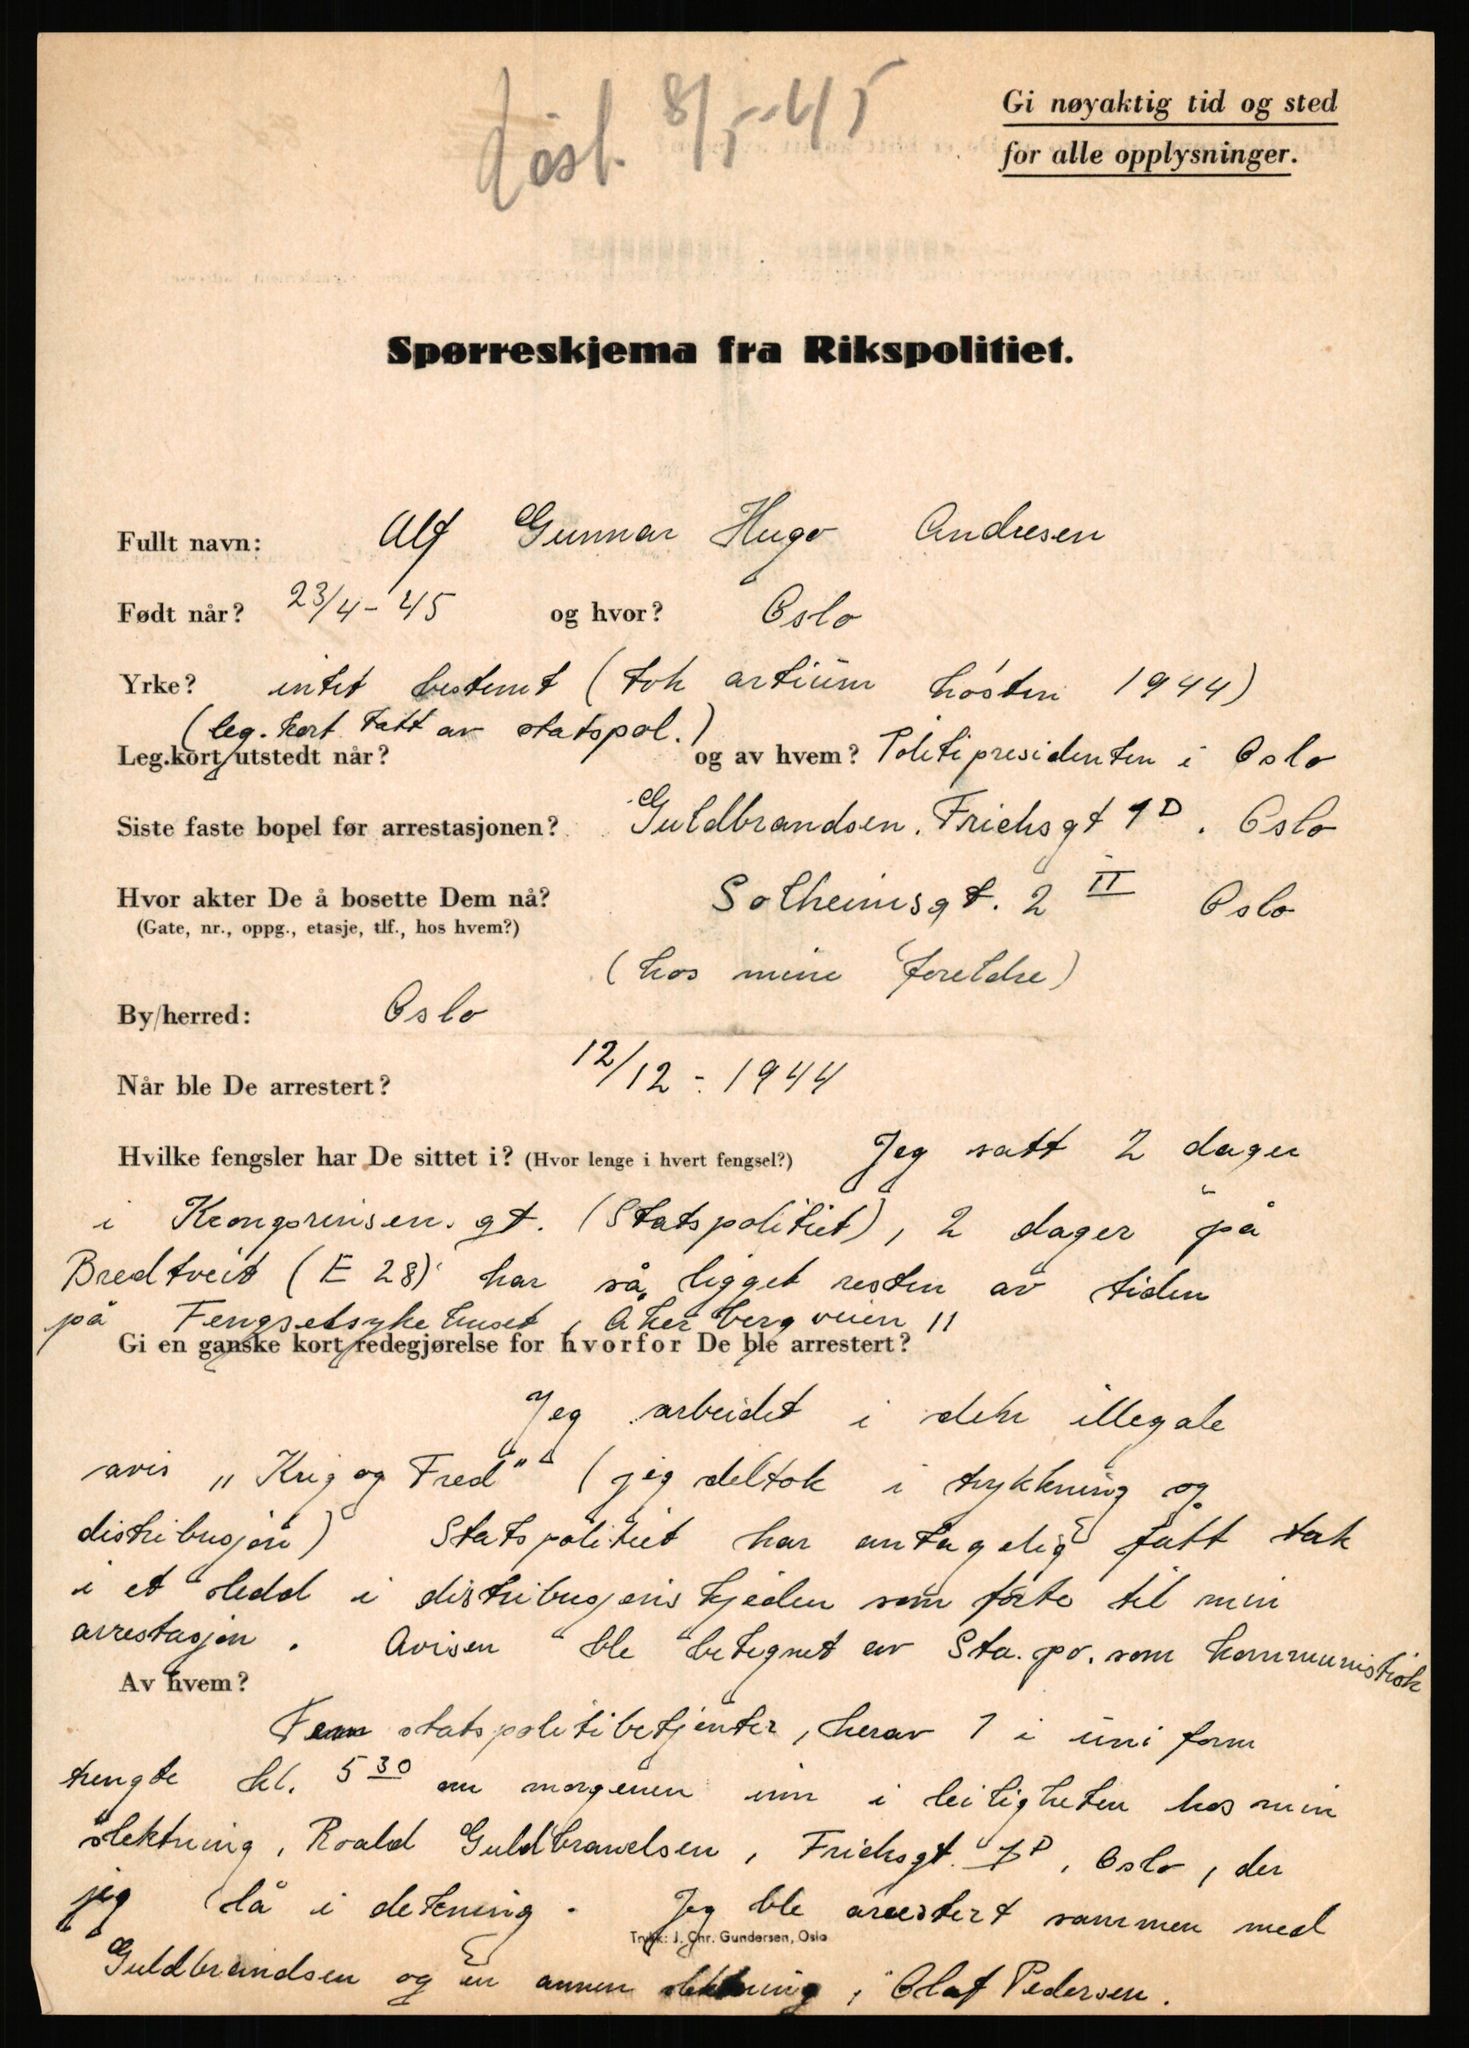 Løsl. 8/5-45
Gi nøyaktig tid og sted
for alle opplysninger.
Spørreskjema fra Rikspolitiet.
Fullt navn: Alf Gunnar Hugo Andresen
Født når? 23/4-45 og hvor? Oslo
Yrke? intet bestemt (tok artium høsten 1944)
(leg. kort tatt av statspol.)
Leg.kort utstedt når? og av hvem? Politipresidenten i Oslo
Siste faste bopel før arrestasjonen? Guldbrandsen. Frichsgt 1D. Oslo
Hvor akter De å bosette Dem nå? Solheimsgt. 2 II Oslo
(Gate, nr., oppg., etasje, tlf., hos hvem?)
(hos mine foreldre)
By/herred: Oslo
Når ble De arrestert? 12/12-1944
Hvilke fengsler har De sittet i? (Hvor lenge i hvert fengsel?) Jeg satt 2 dager
i Kronprinsen. gt. (Statspolitiet), 2 dager på
Bredtveit (E 28) har så ligget resten av tiden
på Fengselsykehuset, Akerbergveien 11
Gi en ganske kort redegjørelse for hvorfor De ble arrestert?
Jeg arbeidet i den illegale
avis „Krig og Fred" (jeg deltok i trykkning og
distribusjon) Statspolitiet har antagelig fått tak
i et ledd i distribusjonskjeden som førte til min
arrestasjon. Avisen ble betegnet av Sta.po. som kommunistisk
Av hvem?
Fem statspolitibetjenter, herav 1 i uniform
trengte kl. 5 30 om morgenen inn i leiligheten hos min
slektning, Roald Guldbrandsen, Frichsgt. 1D, Oslo, der
jeg lå i dekning. Jeg ble arrestert sammen med
Trykk: J. Chr. Gundersen, Oslo
Guldbrandsen og en annen slektning, Olaf Pedersen.